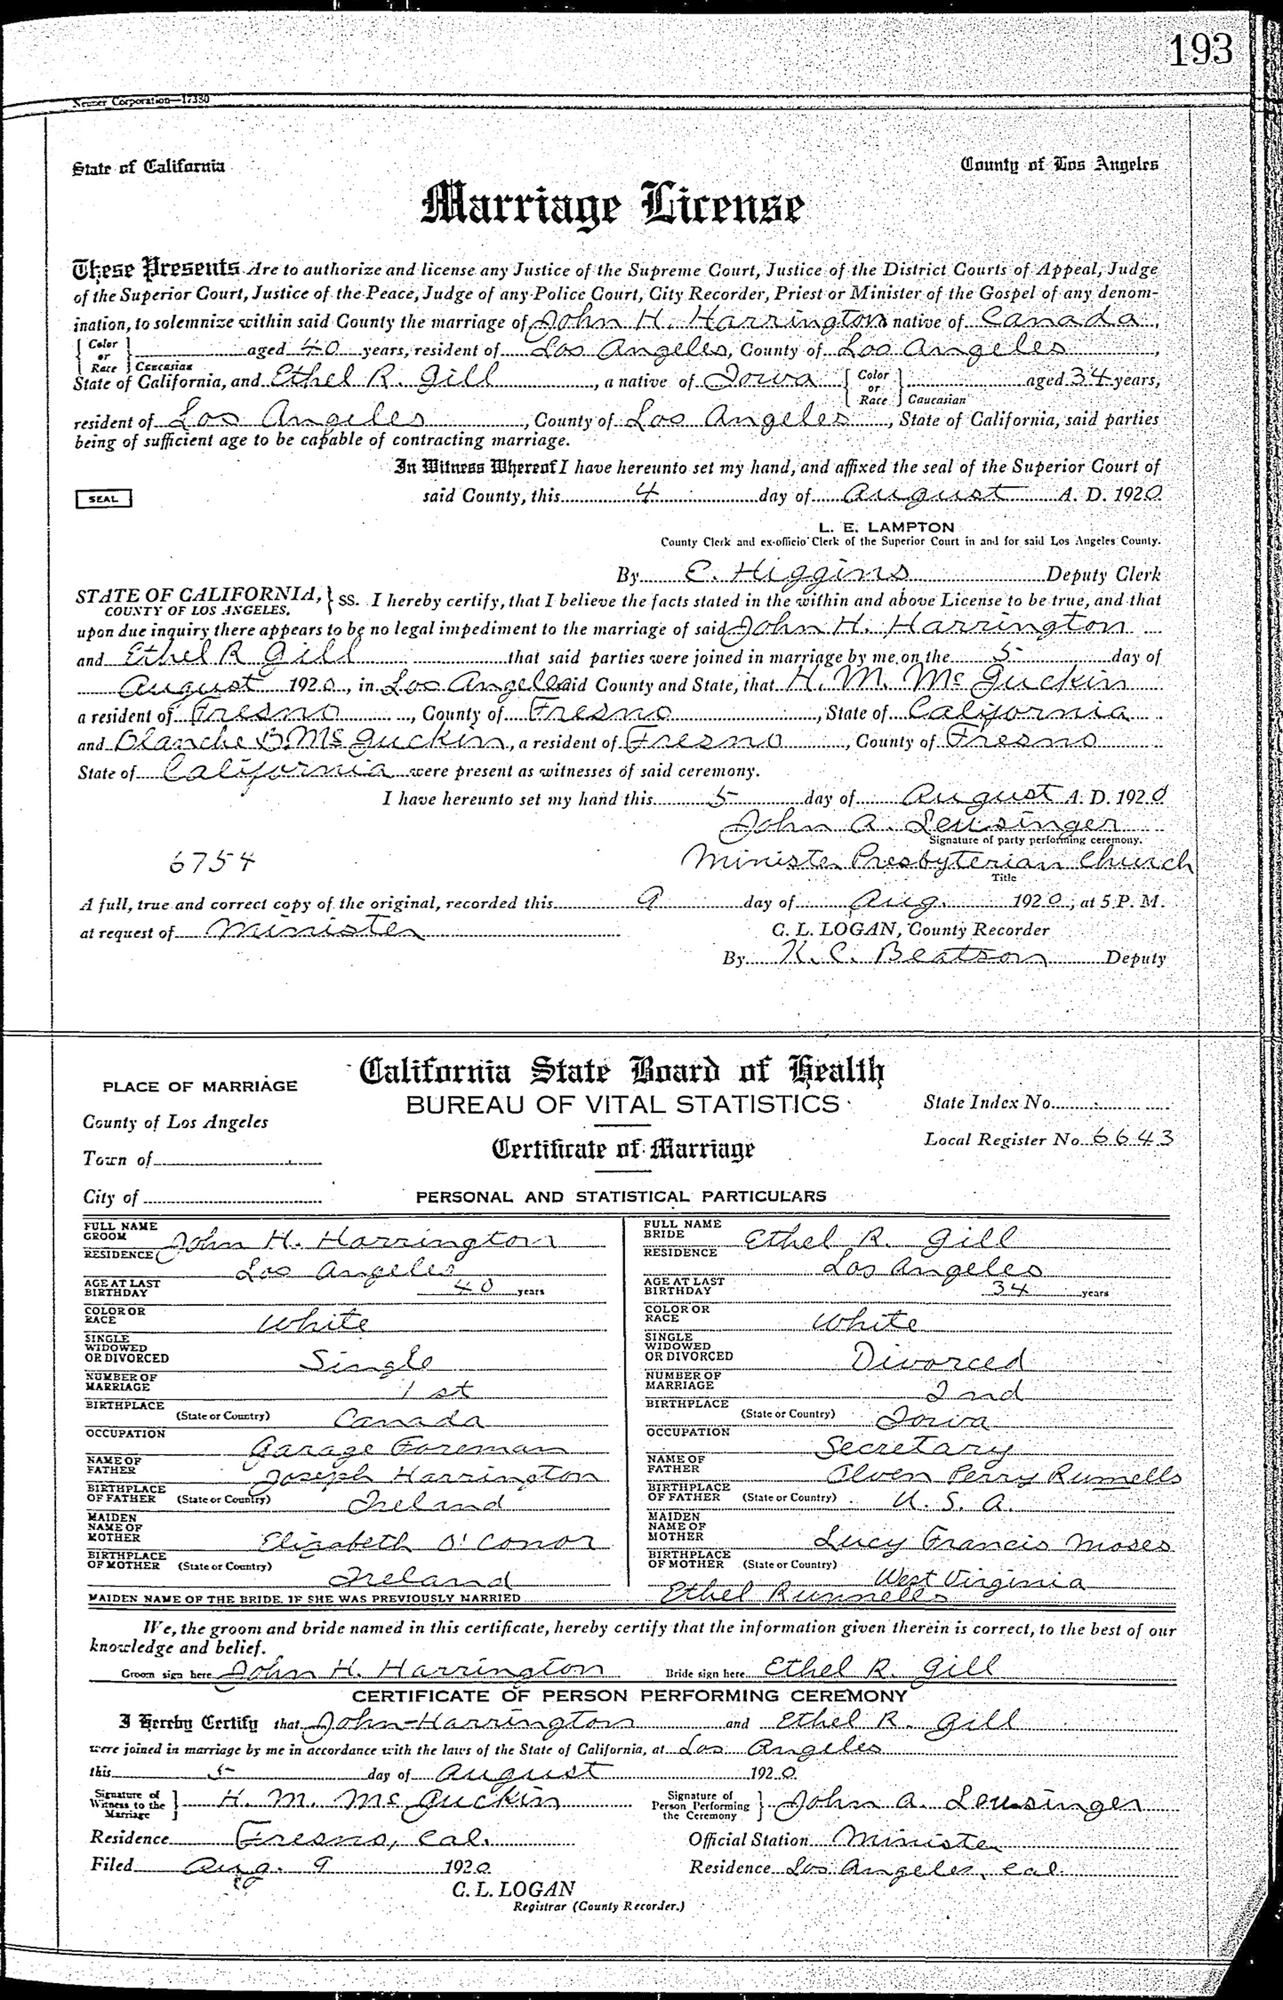 193
Neuner Corporation—17330
State of California County of Los Angeles
Marriage License
These Presents Are to authorize and license any Justice of the Supreme Court, Justice of the District Courts of Appeal, Judge
of the Superior Court, Justice of the Peace, Judge of any Police Court, City Recorder, Priest or Minister of the Gospel of any denom-
ination, to solemnize within said County the marriage of John H. Harrington native of Canada,
{ Color or Race } Caucasian aged 40 years, resident of Los Angeles, County of Los Angeles,
State of California, and Ethel R. Gill, a native of Iowa { Color or Race } Caucasian aged 34 years,
resident of Los Angeles, County of Los Angeles, State of California, said parties
being of sufficient age to be capable of contracting marriage.
In Witness Whereof I have hereunto set my hand, and affixed the seal of the Superior Court of
SEAL said County, this 4 day of August A. D. 1920
L. E. LAMPTON
County Clerk and ex-officio Clerk of the Superior Court in and for said Los Angeles County.
By E. Higgins Deputy Clerk
STATE OF CALIFORNIA, COUNTY OF LOS ANGELES, } ss. I hereby certify, that I believe the facts stated in the within and above License to be true, and that
upon due inquiry there appears to be no legal impediment to the marriage of said John H. Harrington
and Ethel R Gill that said parties were joined in marriage by me on the 5 day of
August 1920, in Los Angeles said County and State, that H. M. McGuckin
a resident of Fresno, County of Fresno, State of California
and Blanche B. McGuckin, a resident of Fresno, County of Fresno
State of California were present as witnesses of said ceremony.
I have hereunto set my hand this 5 day of August A. D. 1920
John A. Leusinger
Signature of party performing ceremony.
6754 Minister Presbyterian Church
Title
A full, true and correct copy of the original, recorded this 9 day of Aug. 1920, at 5 P. M.
at request of Minister C. L. LOGAN, County Recorder
By K. C. Beatson Deputy
California State Board of Health
PLACE OF MARRIAGE BUREAU OF VITAL STATISTICS State Index No.
County of Los Angeles Certificate of Marriage Local Register No. 6643
Town of
City of PERSONAL AND STATISTICAL PARTICULARS
FULL NAME GROOM John H. Harrington FULL NAME BRIDE Ethel R. Gill
RESIDENCE Los Angeles RESIDENCE Los Angeles
AGE AT LAST BIRTHDAY 40 years AGE AT LAST BIRTHDAY 34 years
COLOR OR RACE White COLOR OR RACE White
SINGLE WIDOWED OR DIVORCED Single SINGLE WIDOWED OR DIVORCED Divorced
NUMBER OF MARRIAGE 1st NUMBER OF MARRIAGE 2nd
BIRTHPLACE (State or Country) Canada BIRTHPLACE (State or Country) Iowa
OCCUPATION Garage Foreman OCCUPATION Secretary
NAME OF FATHER Joseph Harrington NAME OF FATHER Olven Perry Runnells
BIRTHPLACE OF FATHER (State or Country) Ireland BIRTHPLACE OF FATHER (State or Country) U. S. A.
MAIDEN NAME OF MOTHER Elizabeth O'Conor MAIDEN NAME OF MOTHER Lucy Francis Moses
BIRTHPLACE OF MOTHER (State or Country) Ireland BIRTHPLACE OF MOTHER (State or Country) West Virginia
MAIDEN NAME OF THE BRIDE, IF SHE WAS PREVIOUSLY MARRIED Ethel Runnells
We, the groom and bride named in this certificate, hereby certify that the information given therein is correct, to the best of our
knowledge and belief.
Groom sign here John H. Harrington Bride sign here Ethel R. Gill
CERTIFICATE OF PERSON PERFORMING CEREMONY
I Hereby Certify that John Harrington and Ethel R. Gill
were joined in marriage by me in accordance with the laws of the State of California, at Los Angeles
this 5 day of August 1920
Signature of Witness to the Marriage } H. M. McGuckin Signature of Person Performing the Ceremony } John A. Leusinger
Residence Fresno, Cal. Official Station Minister
Filed Aug. 9 1920 Residence Los Angeles, Cal.
C. L. LOGAN
Registrar (County Recorder.)